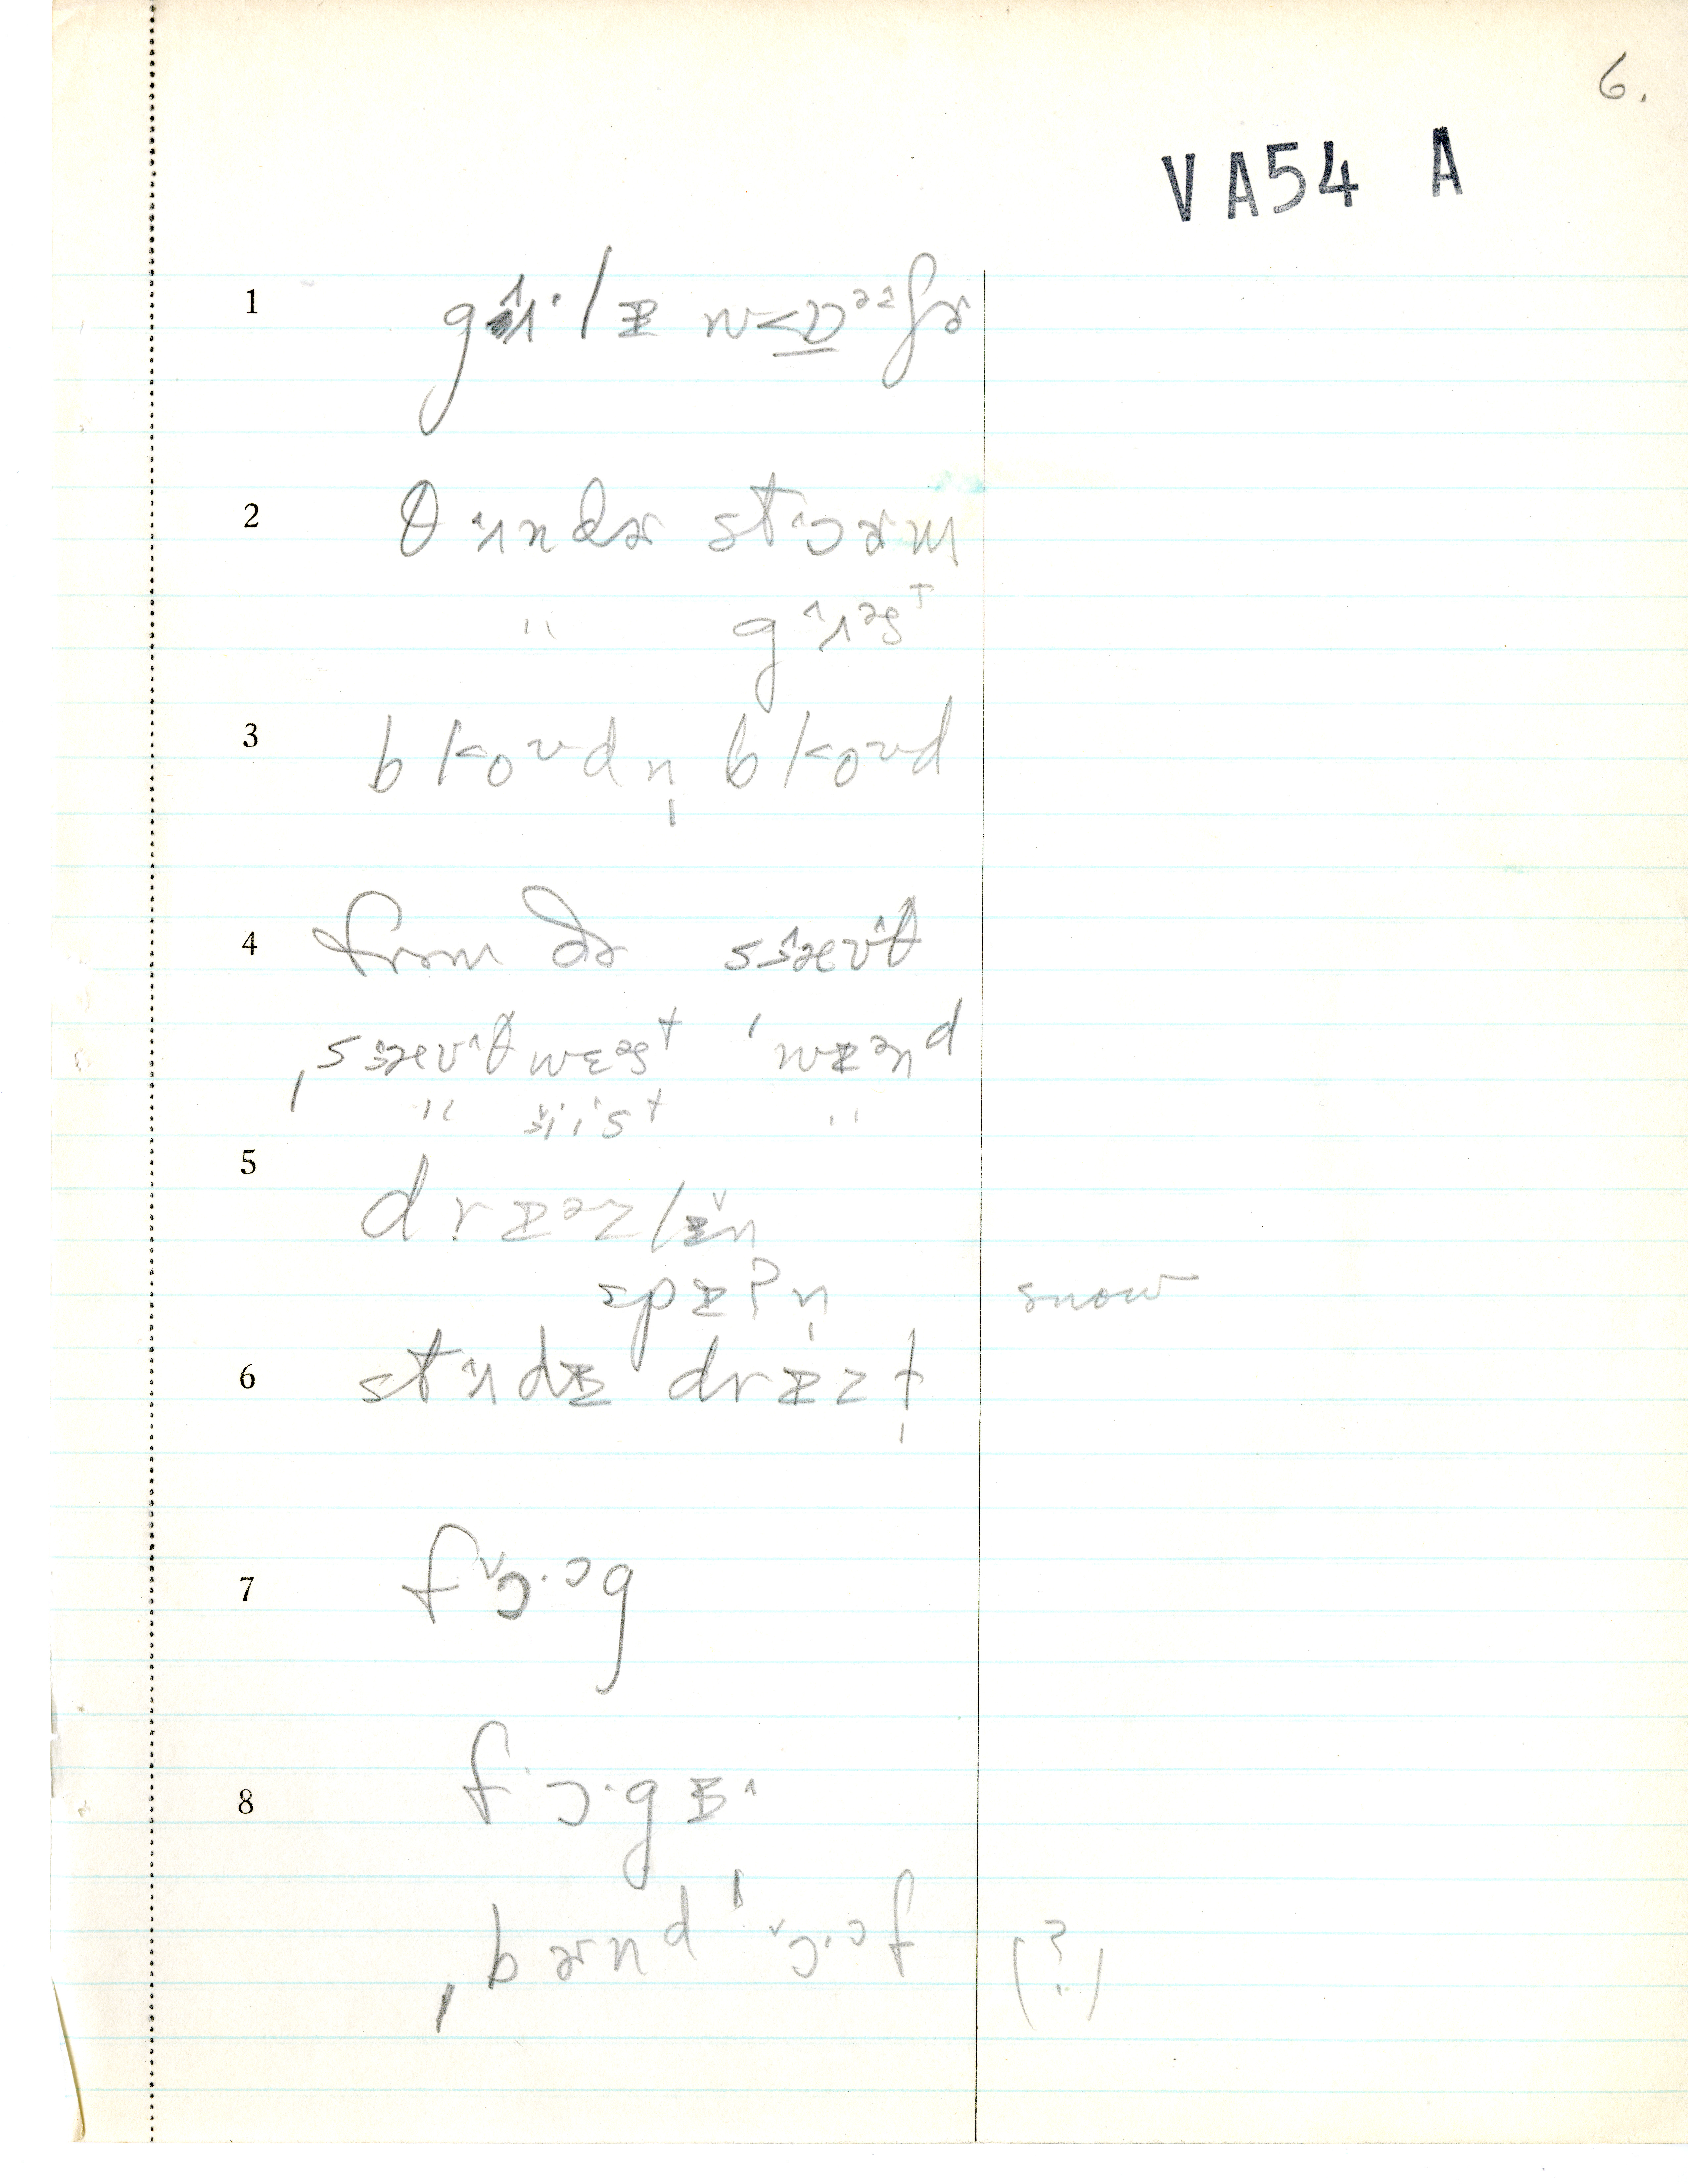 6.
VA54 A
1 gʌ̂ˑlɪ w<ɒ̲ᵊᵊfɚ
2 θʌndɚ stɔɚm
" gʌ̂ᵊsᵗ
3 b l<oᶷdn̩ b l<oᶷd
4 frəm ðə sɜæʊ̂θ
ˌsɜæʊ̂θwɛᵊsᵗ ˈwɪᵊnᵈ
" iisᵗ "
5 drɪᵊzlɪ̌n
spɪʔn̩ snow
6 stʌ̂dɪ drɪzɫ̩
7 fɔ̌ˑᵊg
8 fɔˑgɪ^
ˌbɚnᵈ ˈɔ̌ˑᵊf (?)